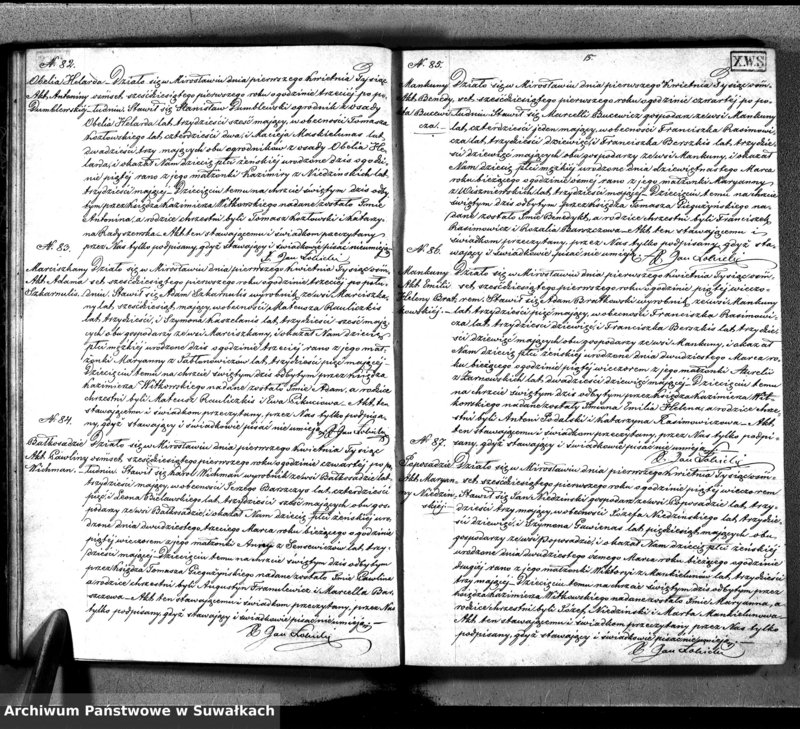 N. 82.
Obelia Helarda Działo się w Mirosławiu dnia pierwszego Kwietnia Tysiąc
Akt Antoniny ośmset sześćdziesiątego pierwszego roku o godzinie trzeciej po po-
Dumblewskiej. łudniu. Stawił się Stanisław Dumblewski ogrodnik z osady
Obelia Helarda lat trzydzieści sześć mający, w obecności Tomasza
Kozłowskiego lat czterdzieści dwa, i Macieja Maskielunas lat
dwadzieścia trzy mających obu ogrodników z osady Obelia He-
larda, i okazał Nam dziecię płci żeńskiej urodzone dziś o godzi-
nie piątej rano z jego małżonki Kazimiry z Niedzińskich lat
trzydzieści mającej. Dziecięciu temu na chrzcie świętym dziś odby-
tym przez Księdza Kazimierza Witkowskiego nadane zostało Imie
Antonina, a rodzice chrzestni byli Tomasz Kozłowski i Katarzy-
na Radyszewska. Akt ten stawającemu i świadkom przeczytany
przez Nas tylko podpisany, gdyż Stawający i świadkowie pisać nieumieją.
X. Jan
N. 83.
Marciszkany Działo się w Mirosławiu dnia pierwszego Kwietnia Tysiąc ośm-
Akt Adama set sześćdziesiątego pierwszego roku o godzinie trzeciej po połu-
Szkarnulis. dniu. Stawił się Adam Szkarnulis wyrobnik ze wsi Marciszka-
ny, lat sześćdziesiąt mający, w obecności Mateusza Rauliczkis
lat trzydzieści, i Szymona Kaselanis lat trzydzieści sześć mają-
cych obu gospodarzy ze wsi Marciszkany, i okazał Nam dziecię
płci męzkiej urodzone dziś o godzinie trzeciej rano z jego mał-
żonki Maryanny z lat trzydzieści pięć mającej.
Dziecięciu temu na chrzcie świętym dziś odbytym przez Księdza
Kazimierza Witkowskiego nadane zostało Imie Adam, a rodzice
chrzestni byli Mateusz Rauliczkis i Ewa Akt ten
stawającemu i świadkom przeczytany, przez Nas tylko podpisa-
ny, gdyż stawający i świadkowie pisać nie umieją. X. Jan
N. 84.
Balkosadzie Działo się w Mirosławiu dnia pierwszego Kwietnia Tysiąc
Akt Pawliny ośmset sześćdziesiątego pierwszego roku o godzinie czwartej po po-
Wichman. łudniu. Stawił się Karol Wichman wyrobnik ze wsi Balkosadzie lat
trzydzieści mający, w obecności Jerzego Barszczys lat czterdzieści
pięć, i Leona Bielawskiego lat trzydzieści sześć mających obu gos-
podarzy ze wsi Balkosadzie, i okazał Nam dziecię płci żeńskiej uro-
dzone dnia dwudziestego trzeciego Marca roku bieżącego o godzinie
piątej wieczorem z jego małżonki Anny z lat trzy-
dzieści mającej. Dziecięciu temu na chrzcie świętym dziś odbytym
przez Księdza Tomasza Pieguzińskiego nadane zostało Imie Pawlina
a rodzice chrzestni byli Augustyn Framelewicz i Marcella Bar-
szczowa. Akt ten stawającemu i świadkom przeczytany, przez Nas
tylko podpisany, gdyż stawający i świadkowie pisać nieumieją.
X. Jan
15.
XWS
N. 85.
Mankuny Działo się w Mirosławiu dnia pierwszego Kwietnia Tysiąc ośm-
Akt Benedy- set sześćdziesiątego pierwszego roku o godzinie czwartej po po-
kta Bucewi- łudniu. Stawił się Marcelli Bucewicz gospodarz ze wsi Mankuny
cza. lat czterdzieści jeden mający, w obecności Franciszka Rasimowi-
cza lat trzydzieści dziewięć, i Franciszka Berszkis lat trzydzie-
ści dziewięć mających obu gospodarzy ze wsi Mankuny, i okazał
Nam dziecię płci męzkiej urodzone dnia dziewiętnastego Marca
roku bieżącego o godzinie ósmej rano z jego małżonki Maryanny
z Wiszniewskich lat trzydzieści mającej. Dziecięciu temu na chrzcie
świętym dziś odbytym przez Księdza Tomasza Pieguzińskiego na-
dane zostało Imie Benedykt, a rodzice chrzestni byli Franciszek
Rasimowicz i Rozalia Barszczowa. Akt ten stawającemu i
świadkom przeczytany, przez Nas tylko podpisany, gdyż sta-
wający i świadkowie pisać nie umieją. X. Jan
N. 86.
Mankuny Działo się w Mirosławiu dnia pierwszego Kwietnia Tysiąc ośm-
Akt Emilii set sześćdziesiątego pierwszego roku o godzinie piątej wieczo-
Heleny Brat- rem. Stawił się Adam Bratkowski wyrobnik ze wsi Mankuny
kowskiej. lat trzydzieści pięć mający, w obecności Franciszka Rasimowi-
cza lat trzydzieści dziewięć, i Franciszka Berszkis lat trzydzie-
ści dziewięć mających obu gospodarzy ze wsi Mankuny, i okazał
Nam dziecię płci żeńskiej urodzone dnia dwudziestego Marca ro-
ku bieżącego o godzinie piątej wieczorem z jego małżonki Aurelii
z Żarnowskich lat dwadzieścia dziewięć mającej. Dziecięciu temu
na chrzcie świętym dziś odbytym przez Księdza Kazimierza Wit-
kowskiego nadane zostały Imiona Emilia Helena, a rodzice chrze-
stni byli Antoni Podalski i Katarzyna Rasimowiczowa. Akt
ten Stawającemu i świadkom przeczytany, przez Nas tylko podpi-
sany, gdyż stawający i świadkowie pisać nieumieją.
X. Jan
N. 87.
Poposadzie Działo się w Mirosławiu dnia pierwszego Kwietnia Tysiąc ośm-
Akt Maryan- set sześćdziesiątego pierwszego roku o godzinie piątej wieczorem
ny Niedziń- Stawił się Jan Niedziński gospodarz ze wsi Poposadzie lat trzy-
skiej. dzieści trzy mający, w obecności Józefa Niedzińskiego lat trzydzie-
ści dziewięć, i Szymona Pawienas lat pięćdziesiąt mających obu
gospodarzy ze wsi Poposadzie, i okazał Nam dziecię płci żeńskiej
urodzone dnia dwudziestego ósmego Marca roku bieżącego o godzinie
drugiej rano z jego małżonki Wiktoryi z Mankielunów lat trzydzieści
trzy mającej. Dziecięciu temu na chrzcie świętym dziś odbytym przez
Księdza Kazimierza Witkowskiego nadane zostało Imie Maryanna, a
rodzice chrzestni byli Józef Niedziński i Marta Mankielunowa.
Akt ten stawającemu i świadkom przeczytany przez Nas tylko
podpisany, gdyż stawający i świadkowie pisać nieumieją.
X. Jan
Archiwum Państwowe w Suwałkach